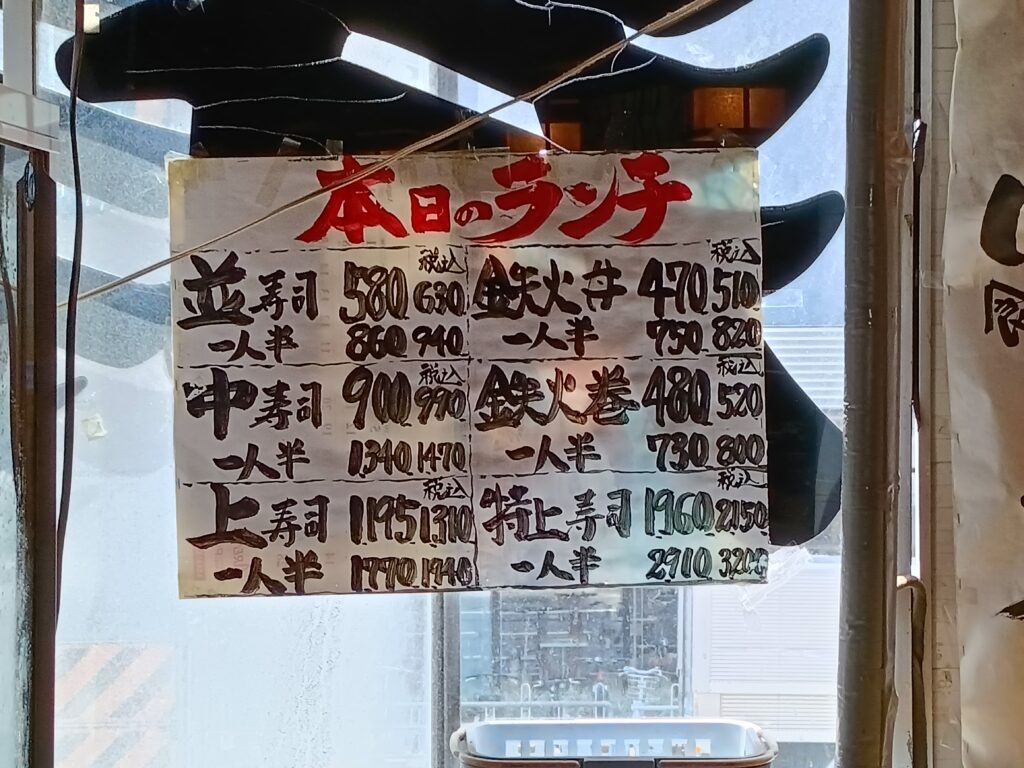 本日のランチ
税込
並寿司 580 630
一人半 860 940
税込
中寿司 900 990
一人半 1340 1470
税込
上寿司 1195 1310
一人半 1770 1940
税込
鉄火丼 470 510
一人半 750 820
税込
鉄火巻 480 520
一人半 730 800
税込
特上寿司 1960 2150
一人半 2910 3200